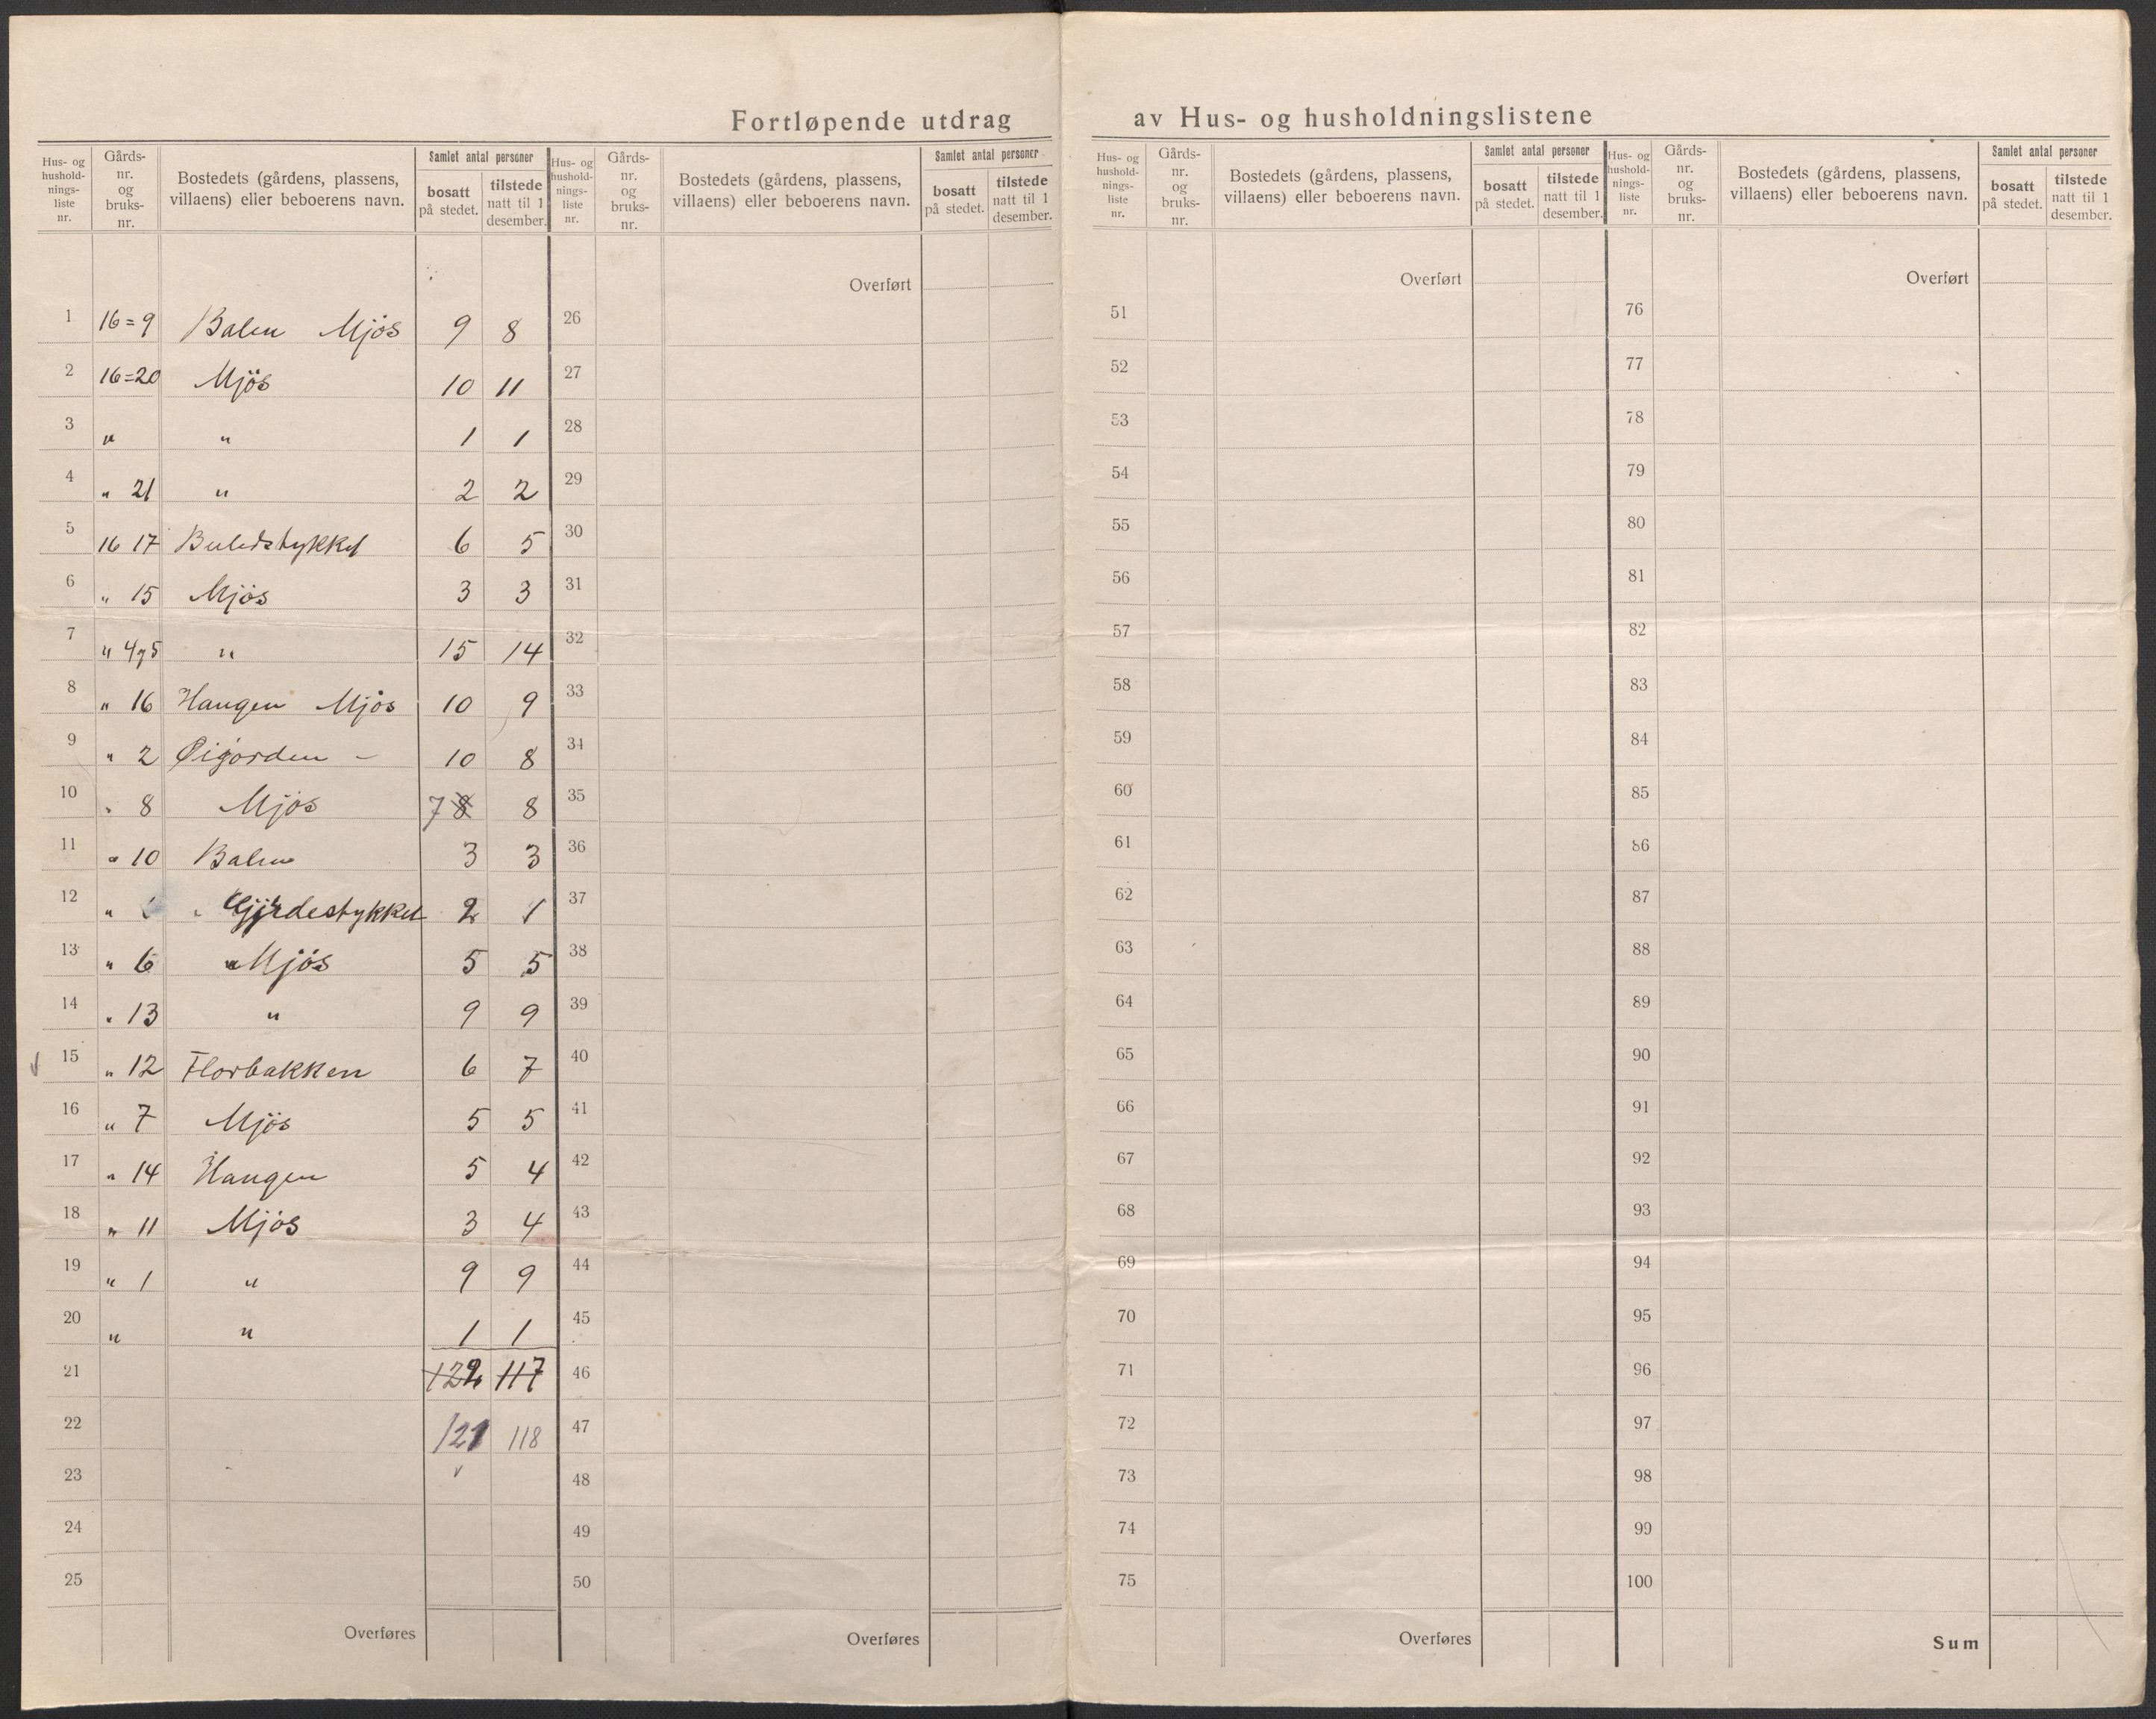 Fortløpende utdrag av Hus- og husholdningslistene
Hus- og hushold-nings-liste nr. Gårds-nr. og bruks-nr. Bostedets (gårdens, plassens, villaens) eller beboerens navn. Samlet antal personer bosatt på stedet. tilstede natt til 1 desember.
1 16=9 Balen Mjøs 9 8
2 16=20 Mjös 10 11
3 " " 1 1
4 " 21 " 2 2
5 16 17 6 5
6 " 15 Mjös 3 3
7 " 4 5 " 15 14
8 " 16 Haugen Mjös 10 9
9 " 2 Øigorden - 10 8
10 " 8 Mjös 7 8 8
11 " 10 Balen 3 3
12 " Gjerdestykket 2 1
13 " 6 " Mjös 5 5
14 " 13 " 9 9
15 " 12 Florbakken 6 7
16 " 7 Mjös 5 5
17 " 14 Haugen 5 4
18 " 11 Mjös 3 4
19 " 1 " 9 9
20 " " 1 1
21 122 117
22 121 118
23
24
25
Overføres
Hus- og hushold-nings-liste nr. Gårds-nr. og bruks-nr. Bostedets (gårdens, plassens, villaens) eller beboerens navn. Samlet antal personer bosatt på stedet. tilstede natt til 1 desember.
Overført
26
27
28
29
30
31
32
33
34
35
36
37
38
39
40
41
42
43
44
45
46
47
48
49
50
Overføres
Hus- og hushold-nings-liste nr. Gårds-nr. og bruks-nr. Bostedets (gårdens, plassens, villaens) eller beboerens navn. Samlet antal personer bosatt på stedet. tilstede natt til 1 desember.
Overført
51
52
53
54
55
56
57
58
59
60
61
62
63
64
65
66
67
68
69
70
71
72
73
74
75
Overføres
Hus- og hushold-nings-liste nr. Gårds-nr. og bruks-nr. Bostedets (gårdens, plassens, villaens) eller beboerens navn. Samlet antal personer bosatt på stedet. tilstede natt til 1 desember.
Overført
76
77
78
79
80
81
82
83
84
85
86
87
88
89
90
91
92
93
94
95
96
97
98
99
100
Sum